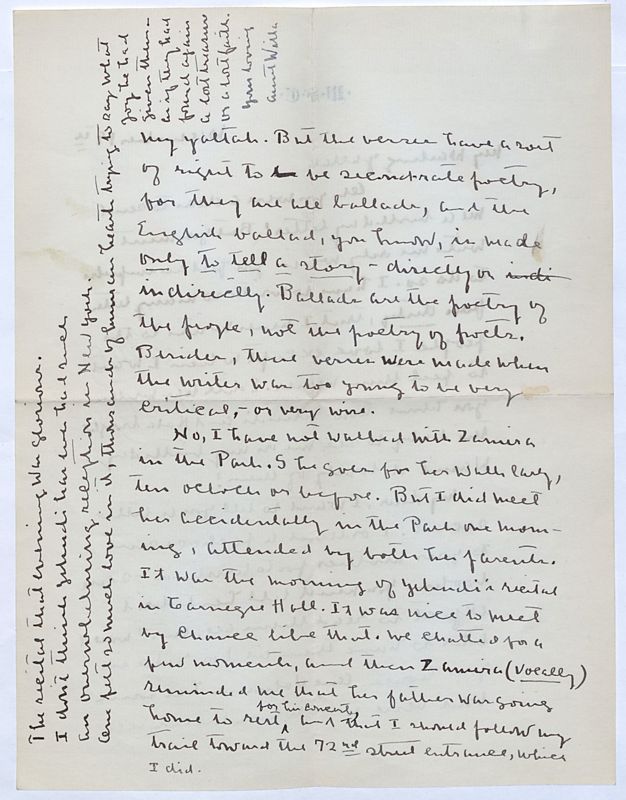 my yaltah. But the verses have a sort
of right to be second-rate poetry,
for they are all ballads, and the
English ballad, you know, is made
only to tell a story - directly or indi
indirectly. Ballads are the poetry of
the people, not the poetry of poets.
Besides, these verses were made when
the writer was too young to be very
critical, - or very wise.
No, I have not walked with Zamira
in the Park. She goes for her walk early,
ten oclock or before. But I did meet
her accidentally in the Park one morn-
ing, attended by both her parents.
It was the morning of Yehudi's recital
in Carnegie Hall. It was nice to meet
by chance like that. We chatted for a
few moments, and then Zamira (vocally)
reminded me that her father was going
home to rest for his concert, and that I should follow my
trail toward the 72nd street entrance, which
I did.
The recital that evening was glorious.
I don't think Yehudi has ever had such
an overwhelming reception in New York.
One felt so much love in it, thousands of human hearts trying to say what
joy he had
given them -
as if they had
found again
a lost treasure
or a lost faith.
Your loving
Aunt Willa